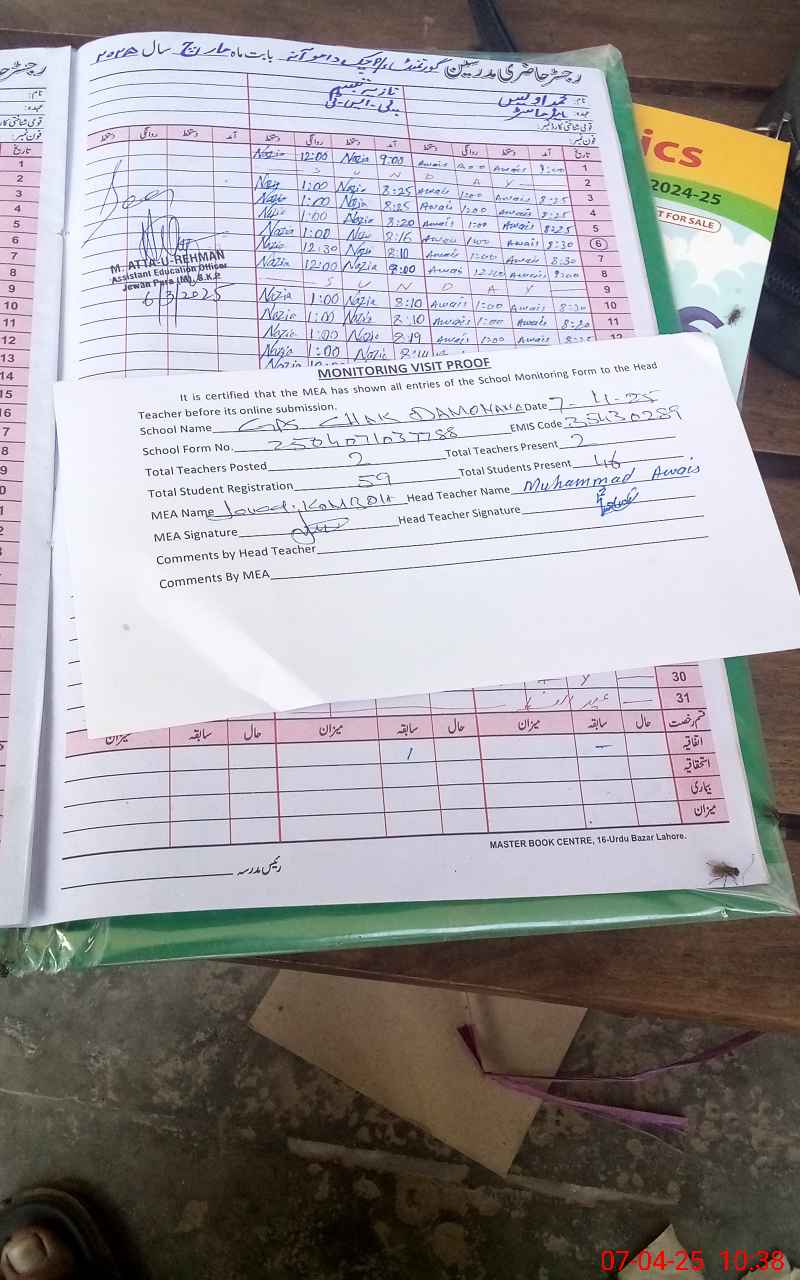 رجسٹر حاضری مدرسین گورنمنٹ پرائمری چک دامو آنہ بابت ماہ مارچ سال ۲۰۲۵
نام: محمد اویس نازیہ تبسم
عہدہ: ہیڈ ماسٹر پی-ایس-ٹی
قومی شناختی کارڈ نمبر:
فون نمبر:
تاریخ آمد دستخط روانگی دستخط آمد دستخط روانگی دستخط آمد دستخط روانگی دستخط
Nazia 12:00 Nazia 9:00 Awais Awais 9:00 1
S U N D A Y 2
Nazia 1:00 Nazia 8:25 Awais 1:00 Awais 8:25 3
Nazia 1:00 Nazia 8:25 Awais 1:00 Awais 8:25 4
Nazia 1:00 Nazia 8:20 Awais 1:00 Awais 8:25 5
Nazia 1:00 Nazia 8:16 Awais 1:00 Awais 8:30 6
Nazia 12:30 Nazia 8:10 Awais 1:00 Awais 8:30 7
Nazia 12:00 Nazia 9:00 Awais 12:00 Awais 9:00 8
S U N D A Y 9
Nazia 1:00 Nazia 8:10 Awais 1:00 Awais 8:20 10
Nazia 1:00 Nazia 8:10 Awais 1:00 Awais 8:20 11
Nazia 1:00 Nazia 8:19 Awais 1:00 Awais 8:25 12
Nazia 1:00 Nazia
M. ATTA-U-REHMAN
Assistant Education Officer
Jewan Pura (M) S.K.P
6/3/2025
ics
2024-25
T FOR SALE
MONITORING VISIT PROOF
It is certified that the MEA has shown all entries of the School Monitoring Form to the Head
Teacher before its online submission.
School Name GPS CHAK DAMONANA Date 7-4-25
School Form No. 2504071037788 EMIS Code 35430289
Total Teachers Posted 2 Total Teachers Present 2
Total Student Registration 59 Total Students Present 46
MEA Name Javed iKAMBOH Head Teacher Name Muhammad Awais
MEA Signature Head Teacher Signature
Comments by Head Teacher
Comments By MEA
30
31
قسم رخصت حال سابقہ میزان حال سابقہ میزان حال سابقہ میزان
اتفاقیہ – 1
استحقاقیہ
بیماری
میزان
MASTER BOOK CENTRE, 16-Urdu Bazar Lahore.
رئیس مدرسہ
07-04-25 10:38